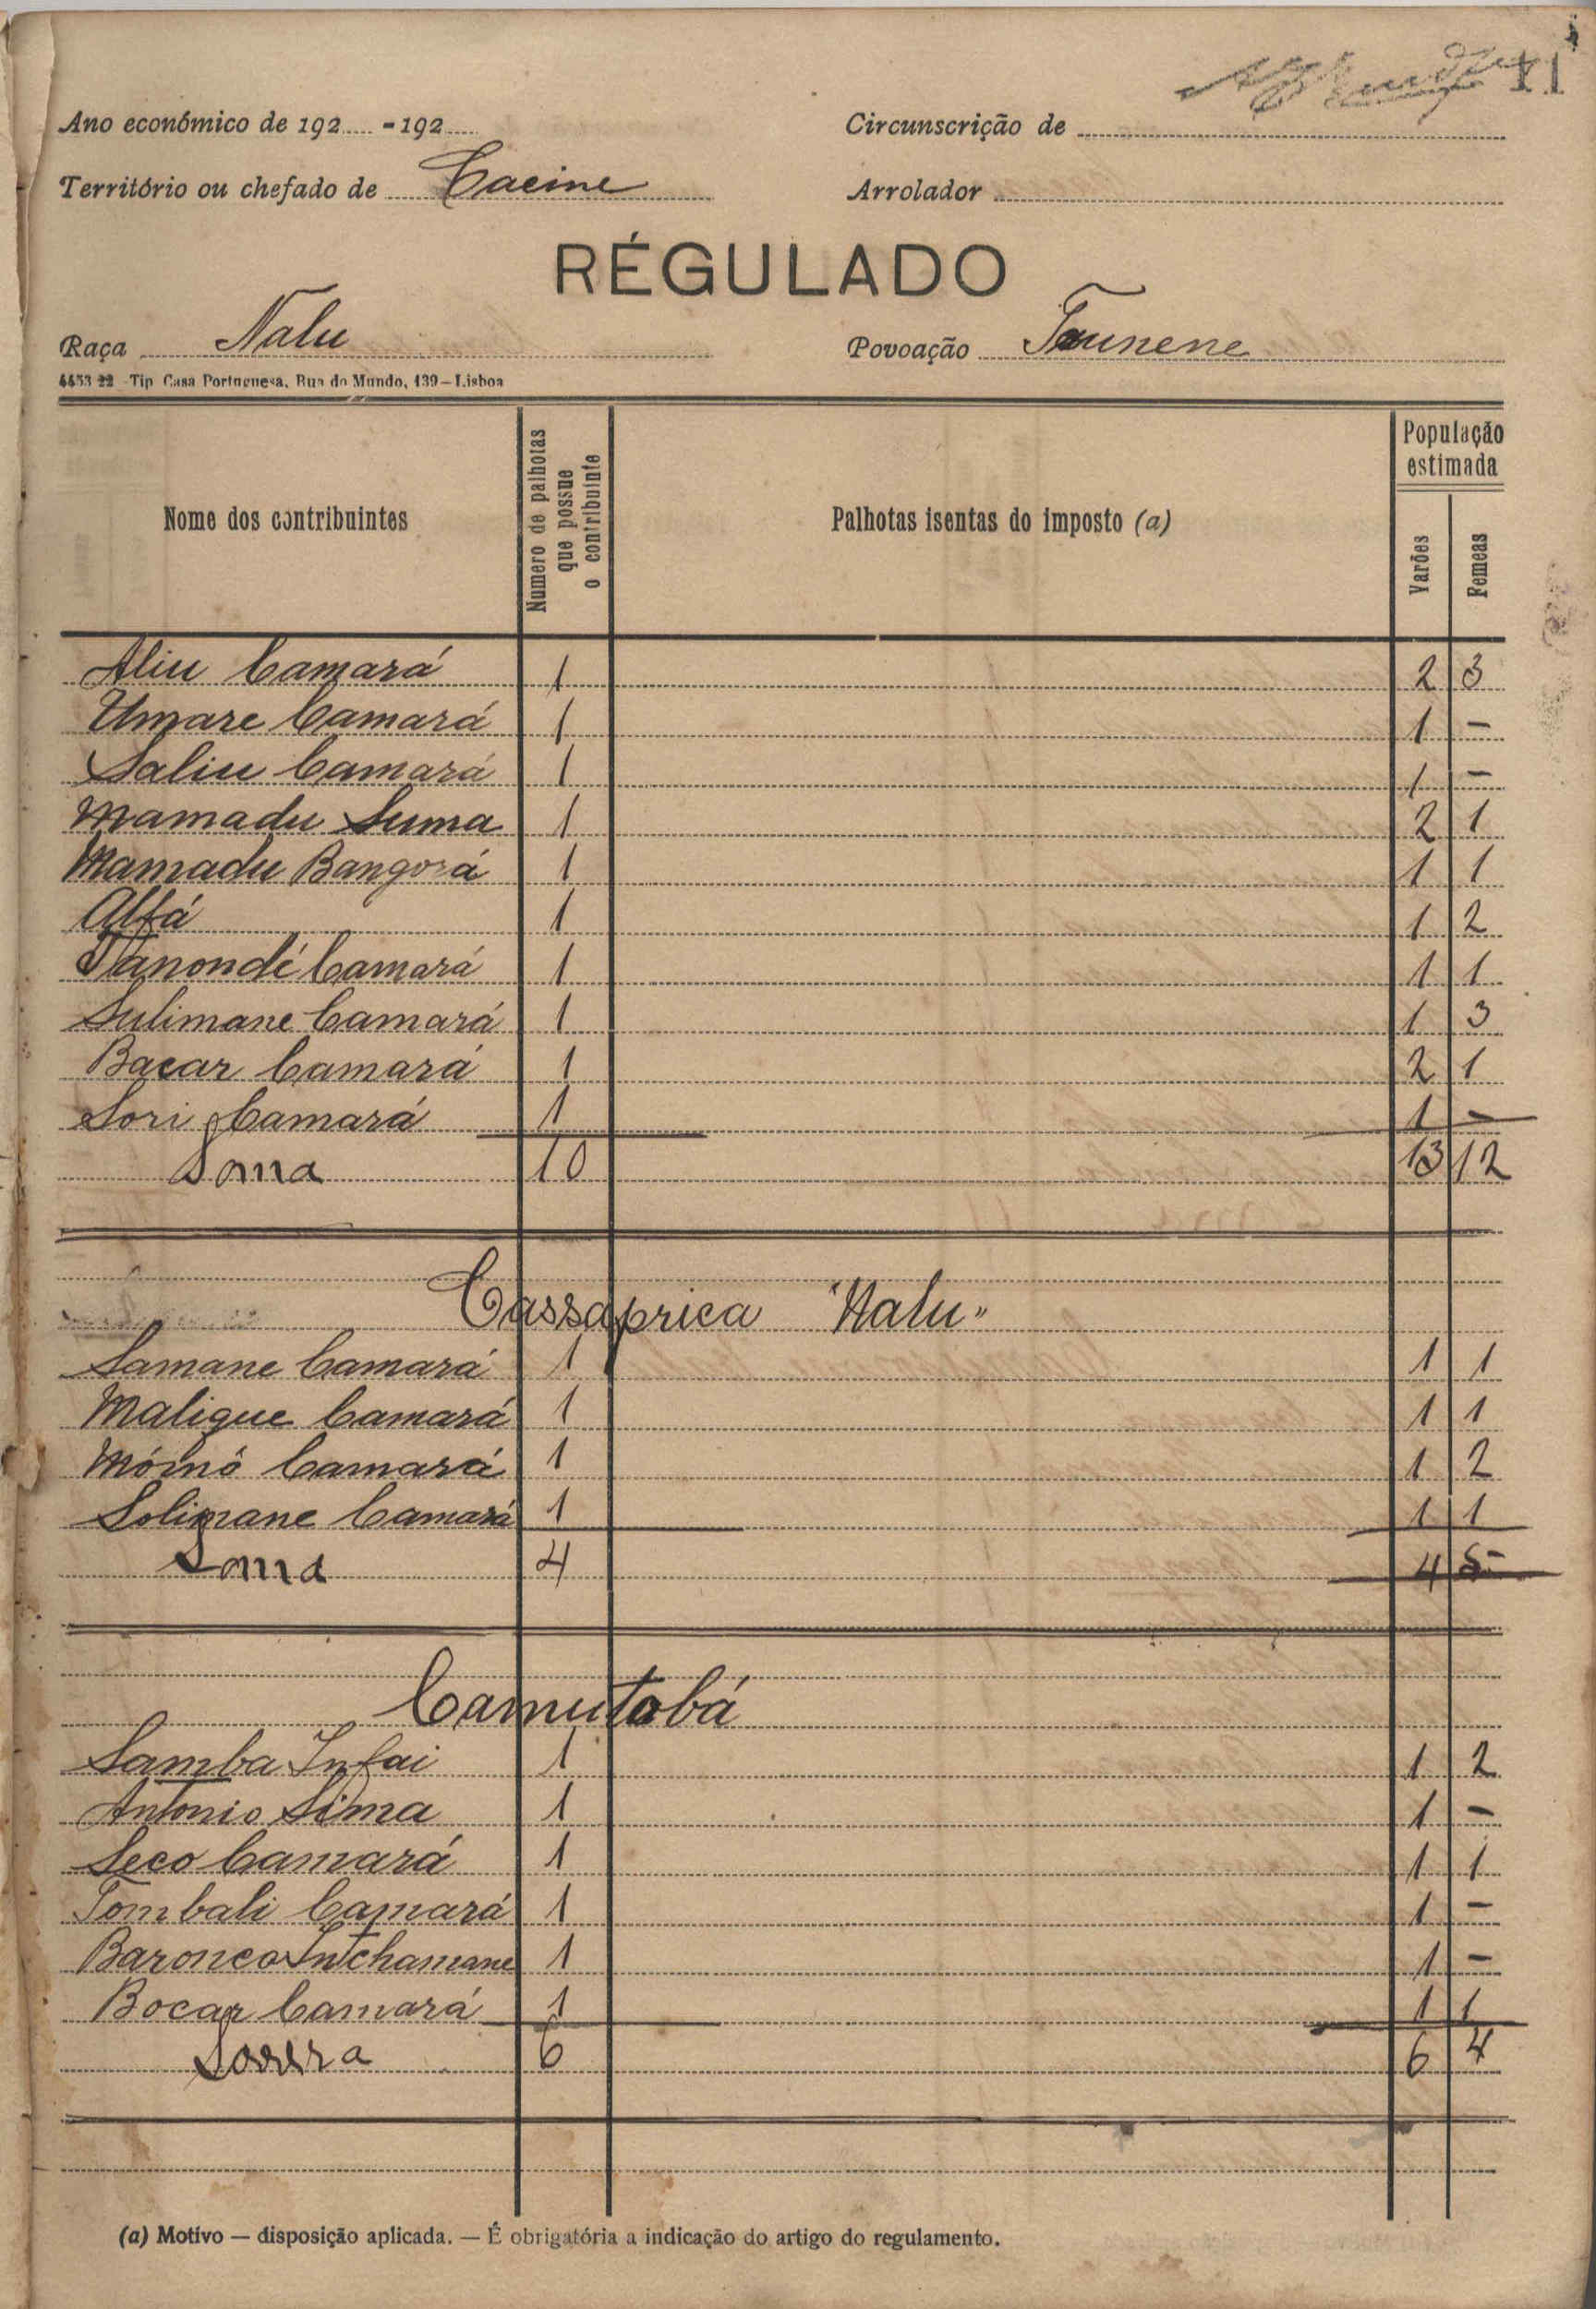 11
Ano económico de 192..... - 192..... Circunscrição de
Território ou chefado de Cacine Arrolador
RÉGULADO
Raça Nalu Povoação Tounene
4453 22 - Tip. Casa Portuguesa, Rua do Mundo, 139 - Lisboa
Nome dos contribuintes Numero de palhotas que possue o contribuinte Palhotas isentas do imposto (a) População estimada Varões Femeas
Aliu Camará 1 2 3
Umare Camará 1 1 -
Saliu Camará 1 1 -
Mamadu Suma 1 2 1
Mamadu Bangorá 1 1 1
Alfá 1 1 2
Vanondé Camará 1 1 1
Sulimane Camará 1 1 3
Bacar Camará 1 2 1
Sori Camará 1 1 -
Soma 10 13 12
Cassaprica "Nalu"
Samane Camará 1 1 1
Malique Camará 1 1 1
Mómó Camará 1 1 2
Solimane Camará 1 1 1
Soma 4 4 5
Camutobá
Samba Infai 1 1 2
Antonio Sima 1 1 -
Seco Camará 1 1 1
Tombali Camará 1 1 -
Baronco Inchamane 1 1 -
Bocar Camará 1 1 1
Somma 6 6 4
(a) Motivo — disposição aplicada. — É obrigatória a indicação do artigo do regulamento.